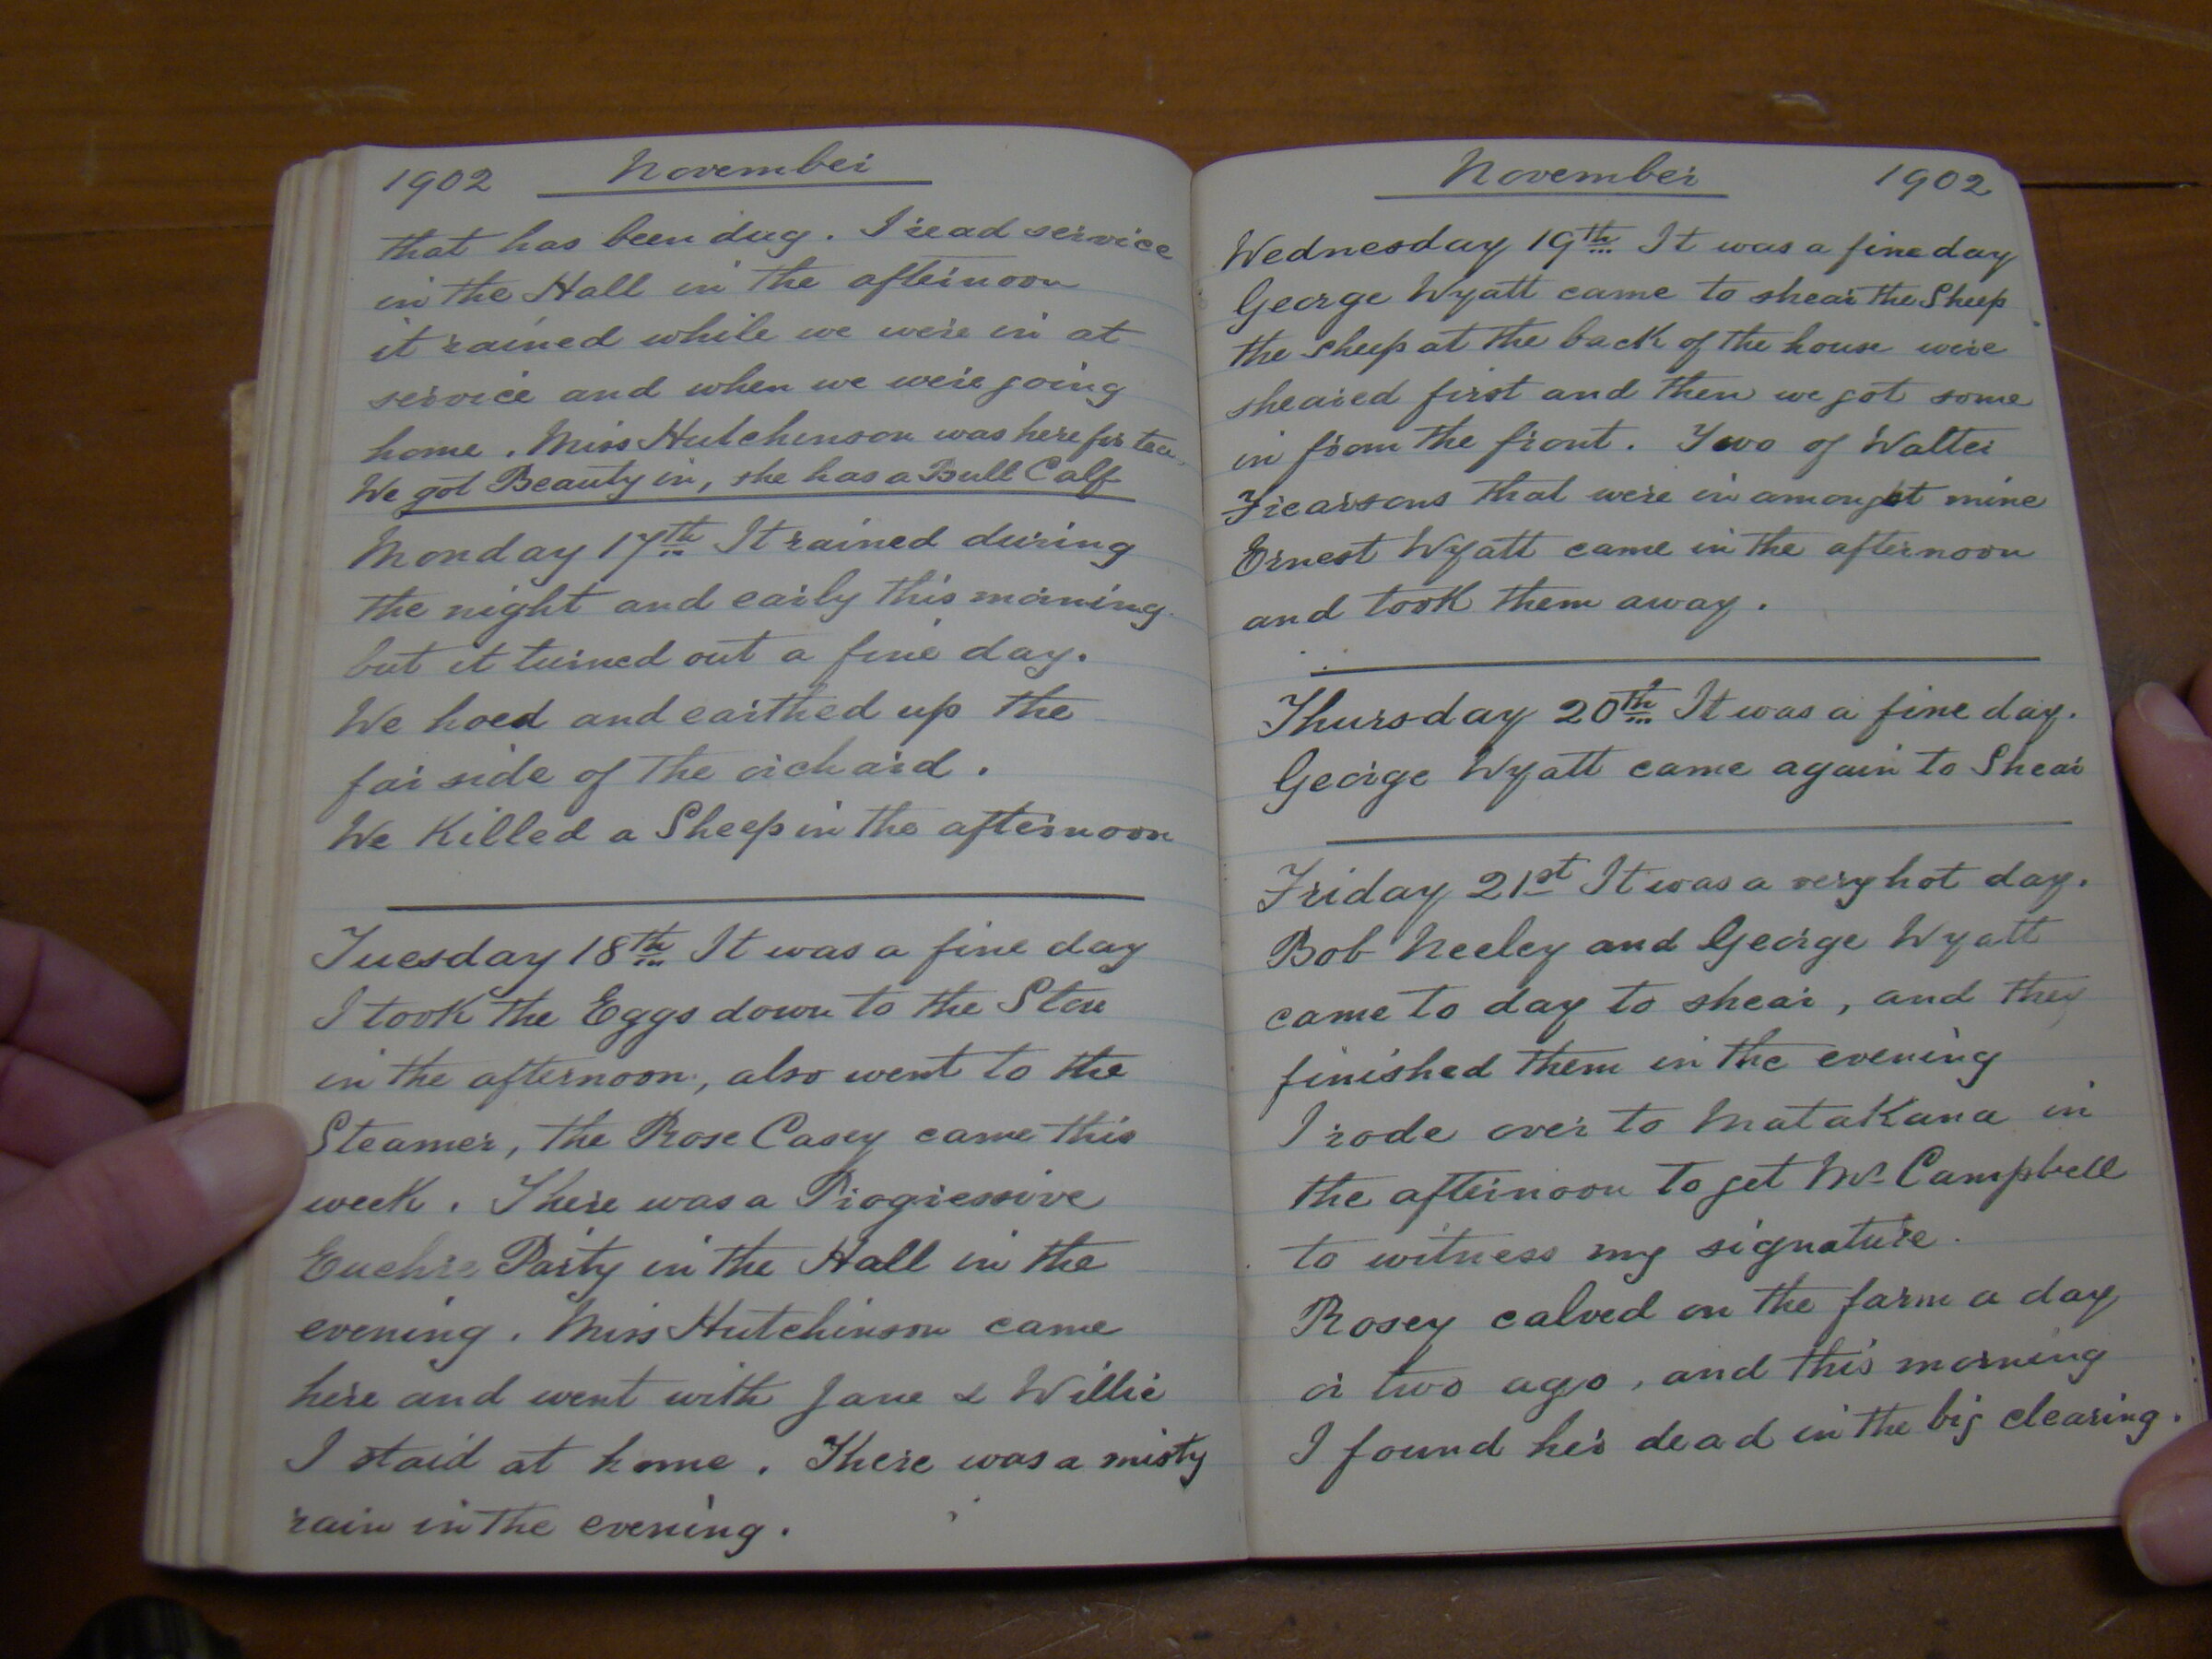 1902 November
that has been dug. I read service
in the Hall in the afternoon
it rained while we were in at
service and when we were going
home. Miss Hutchinson was here for tea.
We got Beauty in, she has a Bull Calf
Monday 17th It rained during
the night and early this morning
but it turned out a fine day.
We hoed and earthed up the
far side of the orchard.
We Killed a Sheep in the afternoon
Tuesday 18th It was a fine day
I took the Eggs down to the Store
in the afternoon, also went to the
Steamer, the Rose Casey came this
week. There was a Progressive
Euchre Party in the Hall in the
evening. Miss Hutchinson came
here and went with Jane & Willie
I staid at home. There was a misty
rain in the evening.
November 1902
Wednesday 19th It was a fine day
George Wyatt came to shear the Sheep
the sheep at the back of the house were
sheared first and then we got some
in from the front. Two of Walter
Frearsons that were in amongst mine
Ernest Wyatt came in the afternoon
and took them away.
Thursday 20th It was a fine day.
George Wyatt came again to Shear
Friday 21st It was a very hot day.
Bob Neeley and George Wyatt
came to day to shear, and they
finished them in the evening
I rode over to MataKana in
the afternoon to get Mr Campbell
to witness my signature.
Rosey calved on the farm a day
or two ago, and this morning
I found her dead in the big clearing.